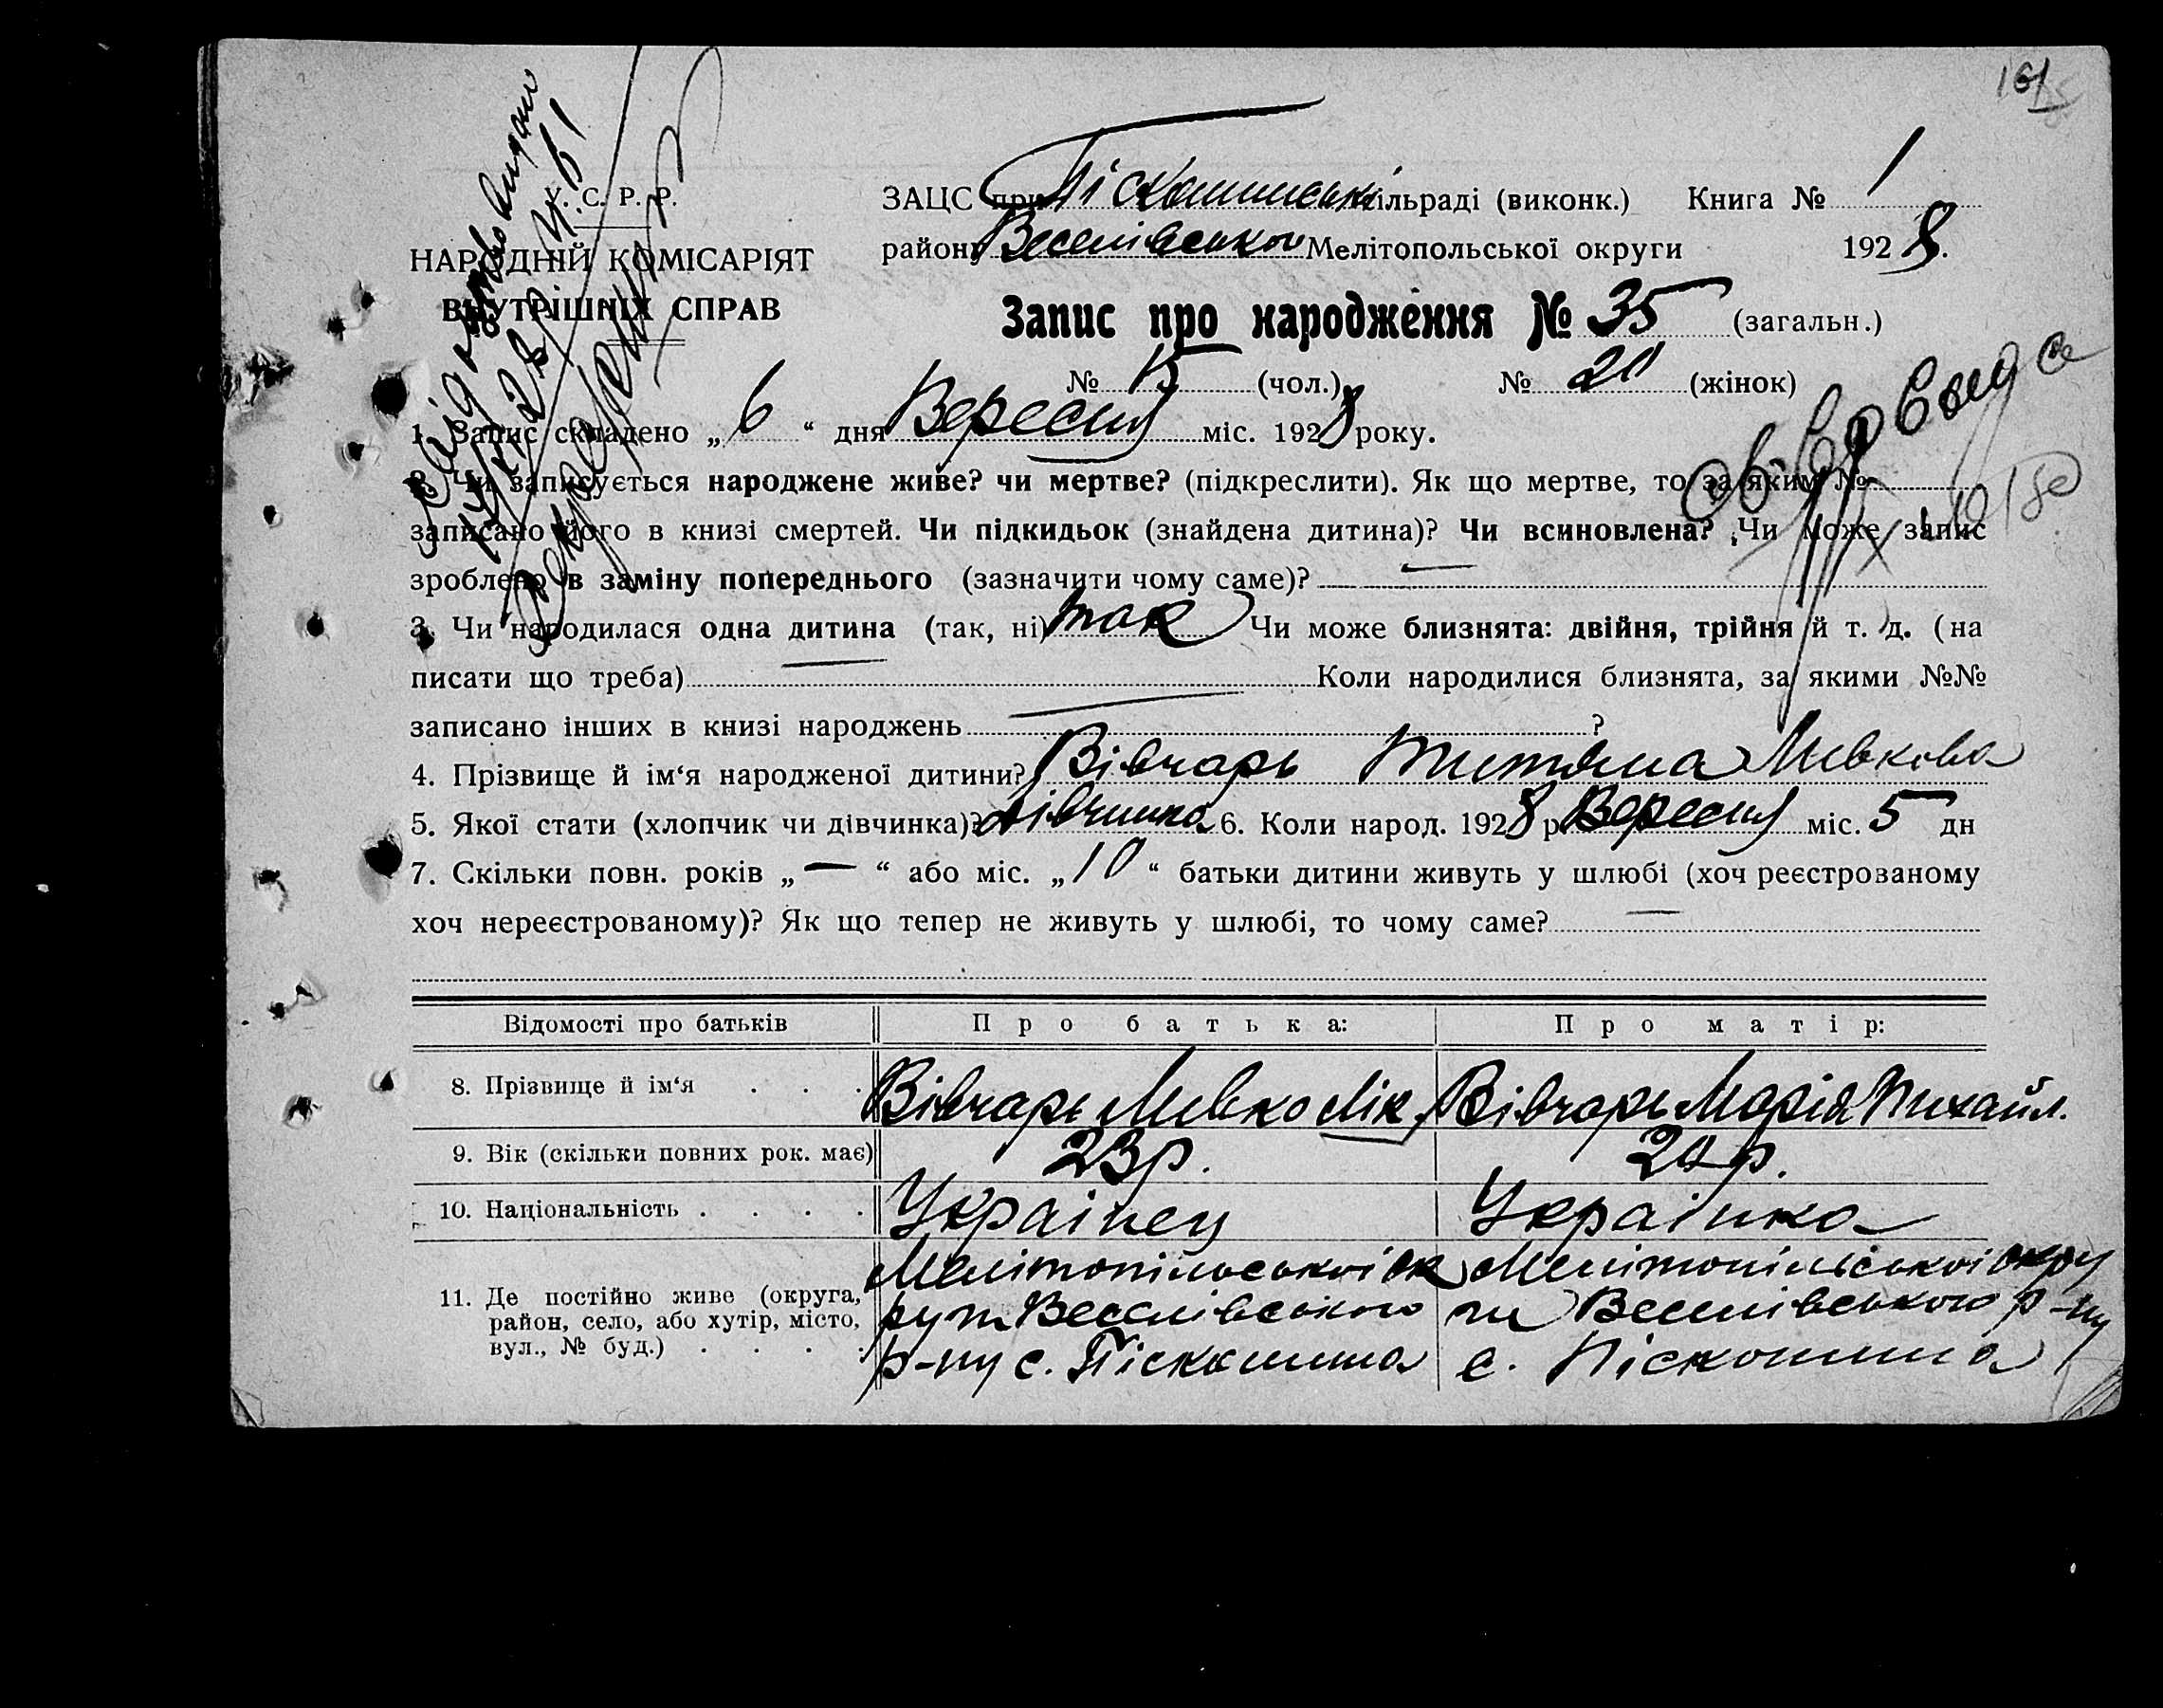 161
У. С. Р. Р.
НАРОДНІЙ КОМІСАРІЯТ
ВНУТРІШНІХ СПРАВ
ЗАЦС при Піскошинській сільраді (виконк.) Книга № 1
району Веселівського Мелітопольської округи 1928.
Запис про народження № 35 (загальн.)
№ 15 (чол.) № 20 (жінок)
1. Запис складено „6“ дня Вересня міс. 1928 року.
2. Чи записується народжене живе? чи мертве? (підкреслити). Як що мертве, то за яким №
записано його в книзі смертей. Чи підкидьок (знайдена дитина)? Чи всиновлена? Чи може запис
зроблено в заміну попереднього (зазначити чому саме)? —
3. Чи народилася одна дитина (так, ні) так Чи може близнята: двійня, трійня й т. д. (на
писати що треба) — Коли народилися близнята, за якими №№
записано інших в книзі народжень — ?
4. Прізвище й ім‘я народженої дитини? Вівчарь Титяна Мивкова
5. Якої стати (хлопчик чи дівчинка)? дівчинка 6. Коли народ. 1928 р Вересня міс. 5 дн
7. Скільки повн. років „—“ або міс. „10“ батьки дитини живуть у шлюбі (хоч реєстрованому
хоч нереєстрованому)? Як що тепер не живуть у шлюбі, то чому саме? —
Відомості про батьків Про батька: Про матір:
8. Прізвище й ім‘я . . . Вівчарь Мивко Мик. Вівчарь Марія Михайл.
9. Вік (скільки повних рок. має) 23 р. 20 р.
10. Національність . . . . Українец Українка
11. Де постійно живе (округа, район, село, або хутір, місто, вул., № буд.) . . . .
Мелітопільської ок
руги Веселівського
р-ну с. Піскошина
Мелітопільської окру
ги Веселівського р-ну
с. Піскошина